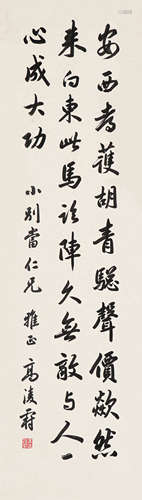 安西都護胡青驄聲價歘然
来向東此馬臨陣久無敵与人一
心成大功 當仁兄 雅正 高凌霨